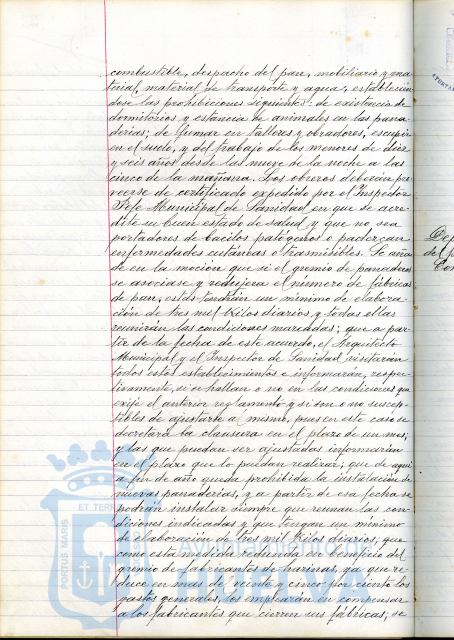 combustible, despacho del pan, mobiliario y ma-
terial, material de transporte y agua, establecien-
dose las prohibiciones siguientes: de existencia de
dormitorios y estancia de animales en las pana-
derias; de fumar en talleres y obradores, escupir
en el suelo, y del trabajo de los menores de diez
y seis años desde las nueve de la noche a las
cinco de la mañana. Los obreros deberán pro-
veerse de certificado expedido por el Inspector
Jefe Municipal de Sanidad en que se acre-
dite su buen estado de salud y que no sea
portadores de bacilos patógenos o padezcan
enfermedades cutáneas o trasmisibles. Se aña-
de en la moción que si el gremio de panaderos
se asociase y redujera el número de fábricas
de pan, estos tendrán un mínimo de elabora-
ción de tres mil kilos diarios, y todas ellas
reunirán las condiciones marcadas; que a par-
tir de la fecha de este acuerdo, el Arquitecto
Municipal y el Inspector de Sanidad visitarán
todos estos establecimientos e informarán, respec-
tivamente, si se hallan o no en las condiciones que
exije el anterior reglamento y si son o no suscep-
tibles de ajustarse al mismo, pues en este caso se
decretará la clausura en el plazo de un mes;
y las que puedan ser ajustadas informarán
en el plazo que lo puedan realizar; que de aqui
a fin de año queda prohibida la instalación de
nuevas panaderias, y a partir de esa fecha se
podrán instalar siempre que reunan las con-
diciones indicadas y que tengan un mínimo
de elaboración de tres mil kilos diarios; que
como esta medida redunda en beneficio del
gremio de fabricantes de harinas, ya que re-
duce en mas de veinte y cinco por ciento los
gastos generales, los emplearán en compensar
a los fabricantes que cierren sus fábricas; se
ET TERR
PORTUS MARIS